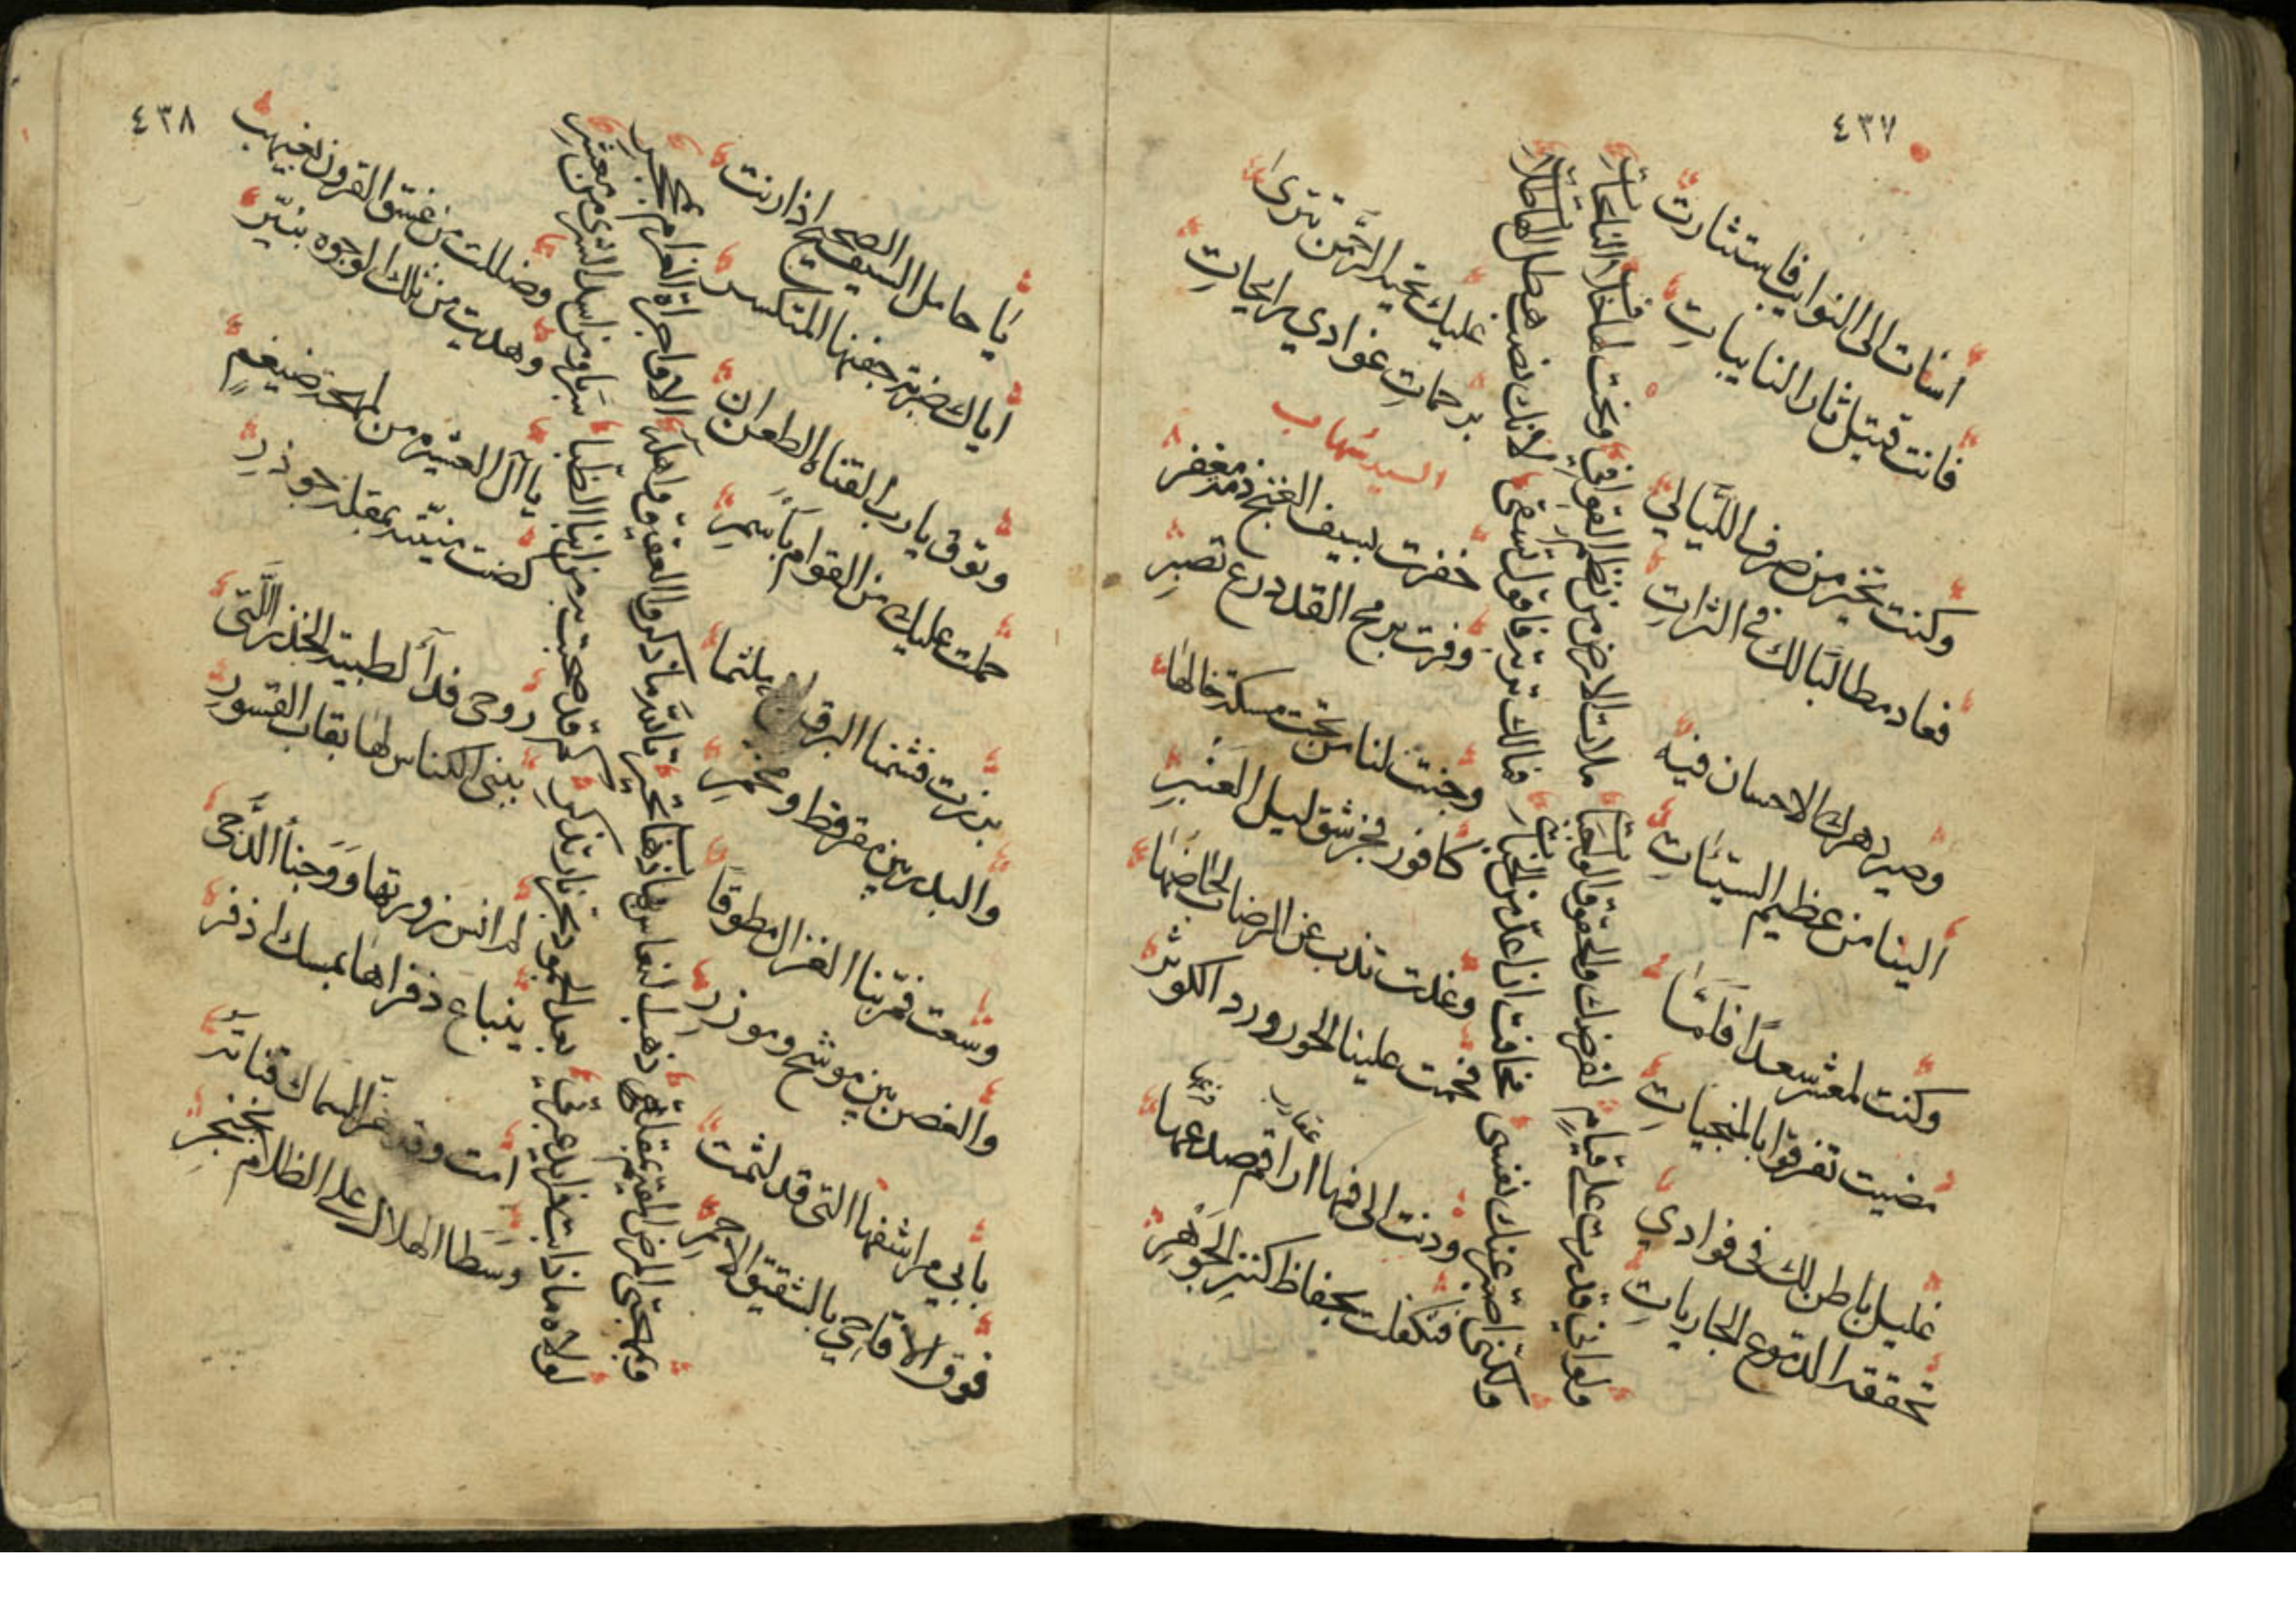 ٤٣٧
اسأت الى النوايب فاستثارت
فانت قتيل ثار النايبات
وكنت تجير من صرف الليالي
فعاد مطالبا لك في الترات
وصير دهرك الاحسان فيه
الينا من عظيم السيئات
وكنت لمعشر سعدا فلما
مضيت تفرقوا بالمنجيات
غليل باطن لك في فوادي
تحققه الدموع الجاريات
ولو اني قدرت على قيام لفرضك والحقوق الواجبات
ملات الارض من نظم القوافي ونحت بها خلاف النائحات
ولكني اصبر عنك نفسي مخافت ان اعد من الجناة
فمالك تربة فاقول تسقى لانك نصب هطل الهاطلات
عليك تحية الرحمن تترى
برحمات غوادي رايحات
السيد شهاب
خفرت بسيف الغنج ذمة مغفر
وفرت برمح القد درع تصبر
وجنت لنا من تحت مسكة خالها
كافور فجر شق ليل العنبر
وغدت تذب عن الرضاب لحاضها
فحمت علينا الحور ورد الكوثر
ودنت الى فمها اراقم صدغها
عقارب
فرعها
فتكفلت بحفاظ كنز الجوهر
٤٣٨
يا حامل السيف الصحيح اذا رنت
اياك ضربة جفنها المتكسر
وتوق يا رب القناة الطعن ان
حملت عليك من القوام باسمر
برزت فشمنا البرق لاح ملثما
والبدر بين مقرقط ومخمر
وسعت فمرّ بنا الغزال مطوقا
والغصن بين موشح وموزر
بابي مراشفها التي قد لثمت
فوق الاقاحي بالشقيق الاحمر
وبمهجتي الروض المقيم بمقلة ذهب النعاس بها ذهاب تحير
تالله ما ذكروا العقيق واهله الا واجراه الغرام بمحجر
لولاه ما ذابت فرايد عبرتي بعد الجمود بحر نار تذكر
كم قد صحبت به من ابنا الظبا سربا ومن اسد الشرى من معشر
وضللت من غسق القرون بغيهب
وهديت من تلك الوجوه بنير
يا آل العشيرة من لمهجة ضيغم
كمنت منيته بمقلة جوذر
روحي فدآ لظبية الخدر التي
يبنى الكناس لها بقاب القسور
لم انس زورتها ووجنا الدجى
ينباع ذفراها بمسك اذفر
امت وقد هز السماك قناته
وسطا الهلال على الظلام بخنجر